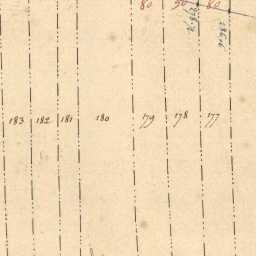 80 50 80
183 182 181 180 179 178 177